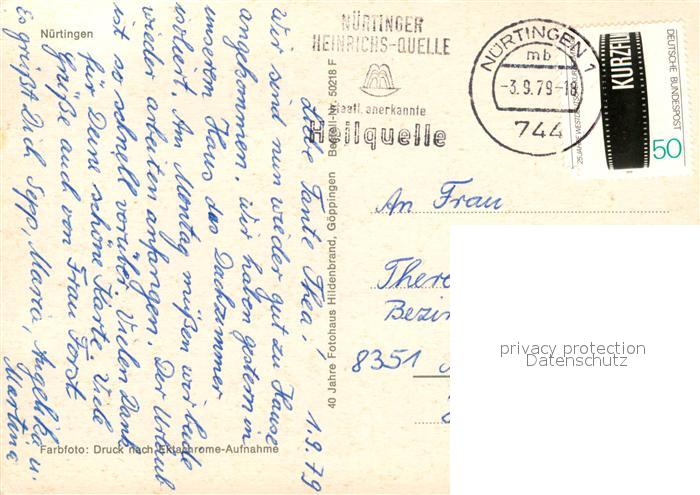 Nürtingen
NÜRTINGER
HEINRICHS-QUELLE
staatl. anerkannte
Heilquelle
NÜRTINGEN 1
mb
-3.9.79-18
744
KURZFILM
DEUTSCHE BUNDESPOST
50
An Frau
There
Bezir
8351
privacy protection
Datenschutz
1.9.79
Liebe Tante Thea!
Wir sind nun wieder gut zu Hause
angekommen. Wir haben gestern in
unserem Haus das Dachzimmer
isoliert. Am Montag müßen wir beide
wieder arbeiten anfangen. Der Urlaub
ist so schnell vorüber. Vielen Dank
für Deine schöne Karte. Viele
Grüße auch von Frau Forst
Es grüßt Dich Sepp, Maria, Angelika u.
Martina
40 Jahre Fotohaus Hildenbrand, Göppingen Bestell-Nr. 50218 F
Farbfoto: Druck nach Ektachrome-Aufnahme